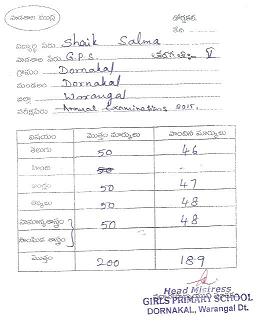 పాఠశాల ముద్ర
దోర్నకల్
తేది
విద్యార్థి పేరు Shaik Salma
పాఠశాల పేరు G.P.S. తరగతి V
గ్రామం Dornakal
మండలం Dornakal
జిల్లా Warangal
పరీక్షపేరు Annual Examinations 2015.
విషయం మొత్తం మార్కులు పొందిన మార్కులు
తెలుగు 50 46
హిందీ 50
ఇంగ్లీషు 50 47
లెక్కలు 50 48
సామాన్యశాస్త్రం 50 48
సాంఘిక శాస్త్రం
మొత్తం 200 189
Head Mistress
GIRLS PRIMARY SCHOOL
DORNAKAL, Warangal Dt.